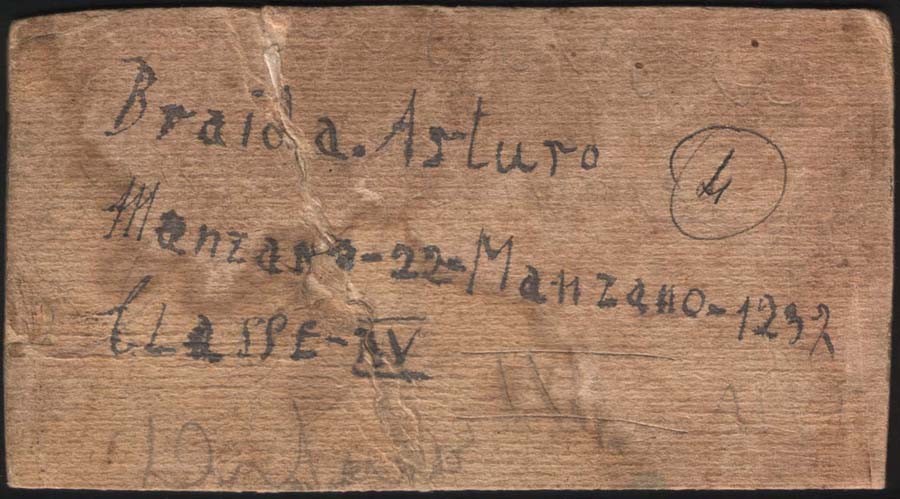 Braida. Arturo
4
Manzana-22-Manzano-1232
CLASSE-IV